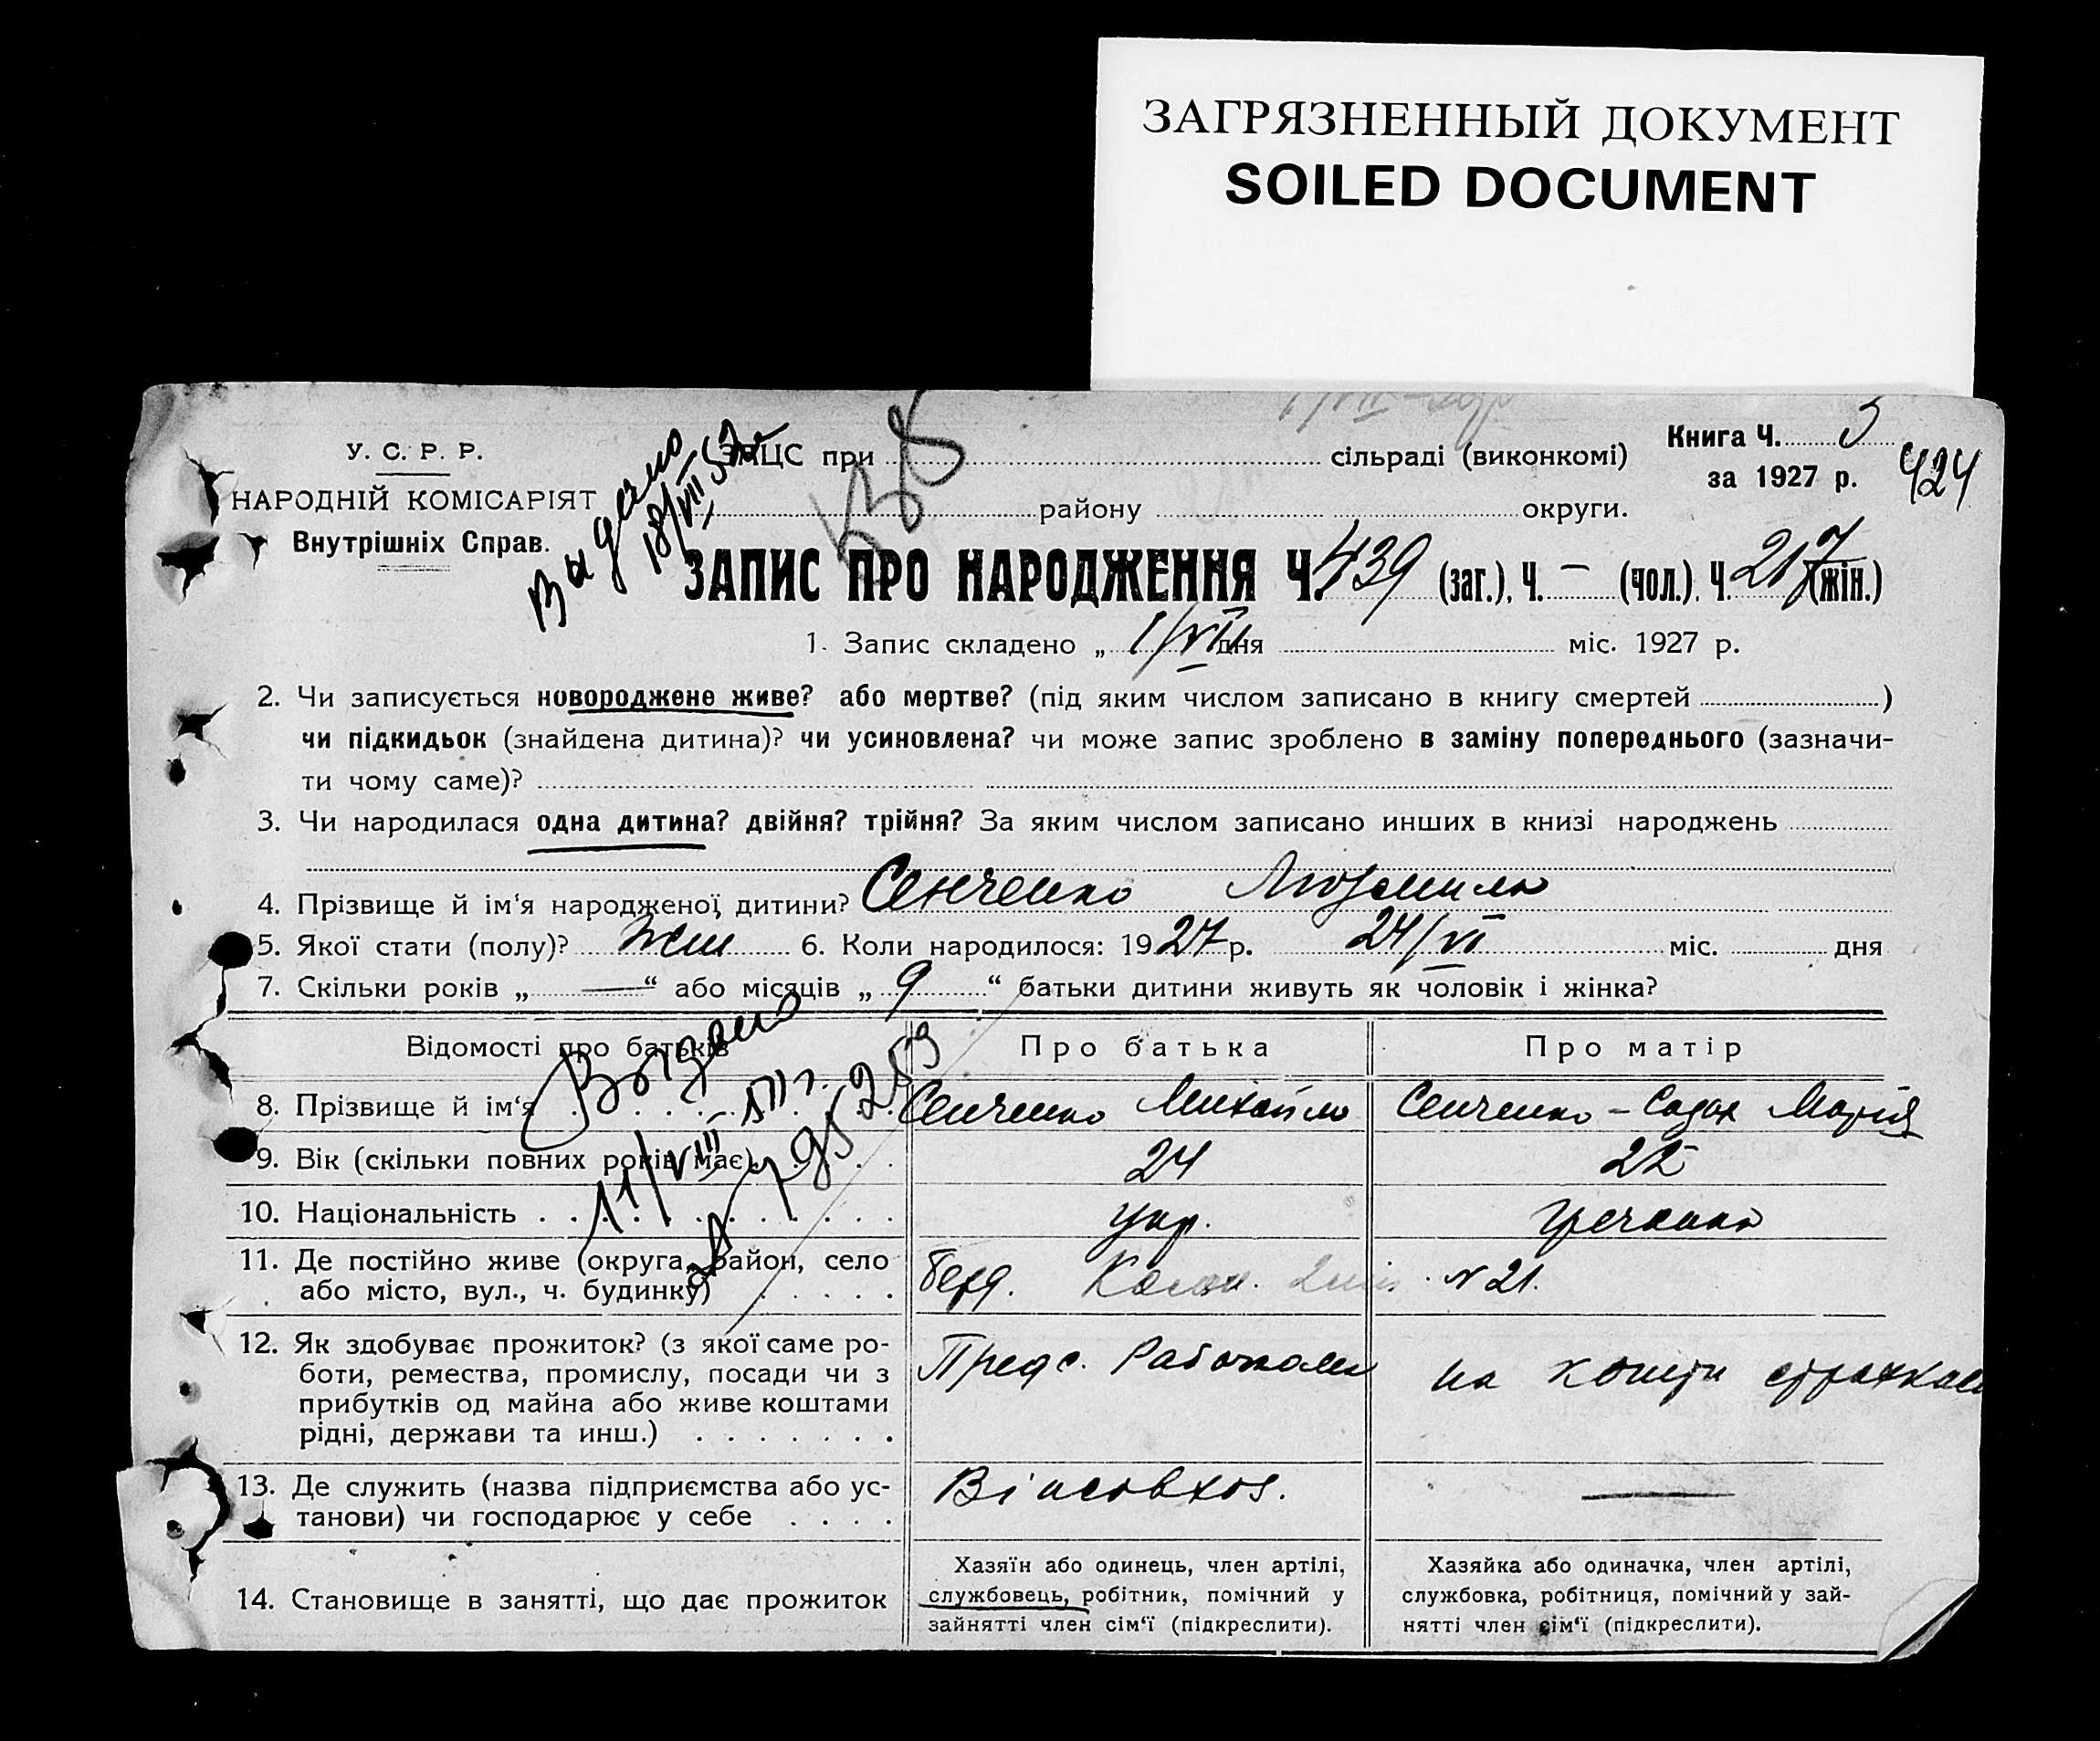 ЗАГРЯЗНЕННЫЙ ДОКУМЕНТ
SOILED DOCUMENT
У. С. Р. Р.
НАРОДНІЙ КОМІСАРІЯТ
Внутрішніх Справ.
Выдано
18/VII 52
ЗАЦС при сільраді (виконкомі)
району округи.
Книга Ч. 3
за 1927 р.
424
ЗАПИС ПРО НАРОДЖЕННЯ Ч. 439 (заг.), Ч. — (чол.), Ч. 217 (жін.)
1. Запис складено „ 1/VII дня міс. 1927 р.
2. Чи записується новороджене живе? або мертве? (під яким числом записано в книгу смертей )
чи підкидьок (знайдена дитина)? чи усиновлена? чи може запис зроблено в заміну попереднього (зазначи-
ти чому саме)?
3. Чи народилася одна дитина? двійня? трійня? За яким числом записано инших в книзі народжень
4. Прізвище й ім‘я народженої дитини? Сенченко Людмила
5. Якої стати (полу)? жін 6. Коли народилося: 1927 р. 24/VI міс. дня
7. Скільки років „ — “ або місяців „ 9 “ батьки дитини живуть як чоловік і жінка?
Відомості про батьків Про батька Про матір
Выдано
11/VIII
8. Прізвище й ім‘я Сенченко Михайло Сенченко - Садах Марія
9. Вік (скільки повних років має) 24 22
10. Національність укр. гречанка
11. Де постійно живе (округа, район, село
або місто, вул., ч. будинку) Берд. N 21.
12. Як здобуває прожиток? (з якої саме ро-
боти, ремества, промислу, посади чи з
прибутків од майна або живе коштами
рідні, держави та инш.) Предс. Рабочком на кошти
13. Де служить (назва підприємства або ус-
танови) чи господарює у себе —
14. Становище в занятті, що дає прожиток
Хазяїн або одинець, член артілі,
службовець, робітник, помічний у
зайнятті член сім‘ї (підкреслити).
Хазяйка або одиначка, член артілі,
службовка, робітниця, помічний у зай-
нятті член сім‘ї (підкреслити).